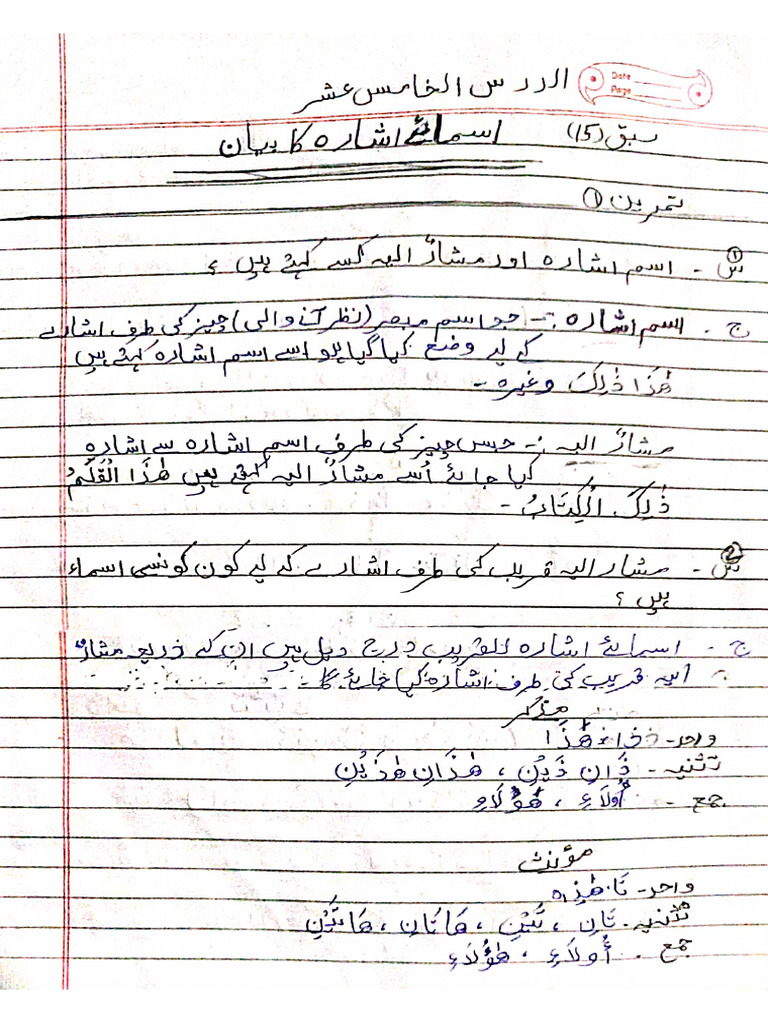 Date
Page
الدرس الخامس عشر
سبق (15) اسمائے اشارہ کا بیان
تمرین ①
س①۔ اسم اشارہ اور مشارٌ الیہ کسے کہتے ہیں ؟
ج۔ اسم اشارہ :- جو اسم مبصر (نظر آنے والی) چیز کی طرف اشارے
کے لیے وضع کیا گیا ہو اسے اسم اشارہ کہتے ہیں
هٰذَا ذٰلِکَ وغیرہ -
مشارٌ الیہ :- جس چیز کی طرف اسم اشارہ سے اشارہ
کیا جائے اُسے مشارٌ الیہ کہتے ہیں هٰذَا الْقَلَمُ
ذٰلِکَ الْکِتَابُ -
س②۔ مشار الیہ قریب کی طرف اشارے کے لیے کون کونسی اسماء
ہیں ؟
ج۔ اسمائے اشارہ للقریب درج ذیل ہیں ان کے ذریعہ مشارٌ
الیہ قریب کی طرف اشارہ کیا جائے گا -
مذکر
واحد - ذا، هٰذَا
تثنیہ - ذَانِ ذَیْنِ ، هٰذَانِ هٰذَیْنِ
جمع - أُولَاءِ ، هٰؤُلَاءِ
مؤنث
واحد - تَا، هٰذِہ
تثنیہ - تَانِ ، تَیْنِ ، هَاتَانِ ، هَاتَیْنِ
جمع - أُولَاءِ ، هٰؤُلَاءِ